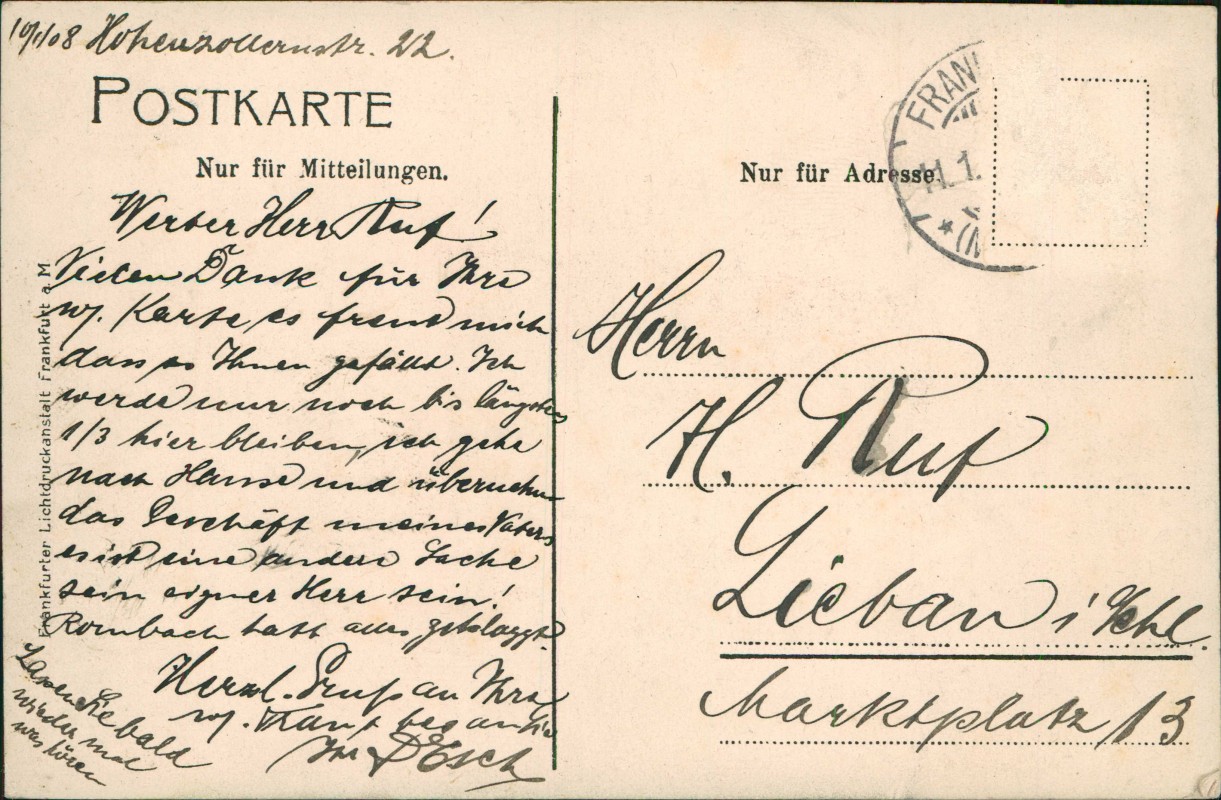 10/1/08 Hohenzollernstr. 22.
POSTKARTE
Nur für Mitteilungen.
Werter Herr Ruf!
Vielen Dank für Ihre
w. Karte, es freut mich
dass es Ihnen gefällt. Ich
werde nur noch bis längstens
1/3 hier bleiben, ich gehe
nach Hause und übernehme
das Geschäft meines Vaters
es ist eine andere Sache
sein eigner Herr sein!
Rombach hatt alles
Herzl. Gruß an Ihre
w. Frau und an Sie
Ihr Esch
Lassen Sie bald
wieder mal
was hören
Frankfurter Lichtdruckanstalt Frankfurt a. M
Nur für Adresse.
FRANK
11.1.
*(M
Herrn
H. Ruf
Liebau i/Schl.
Marktplatz 13